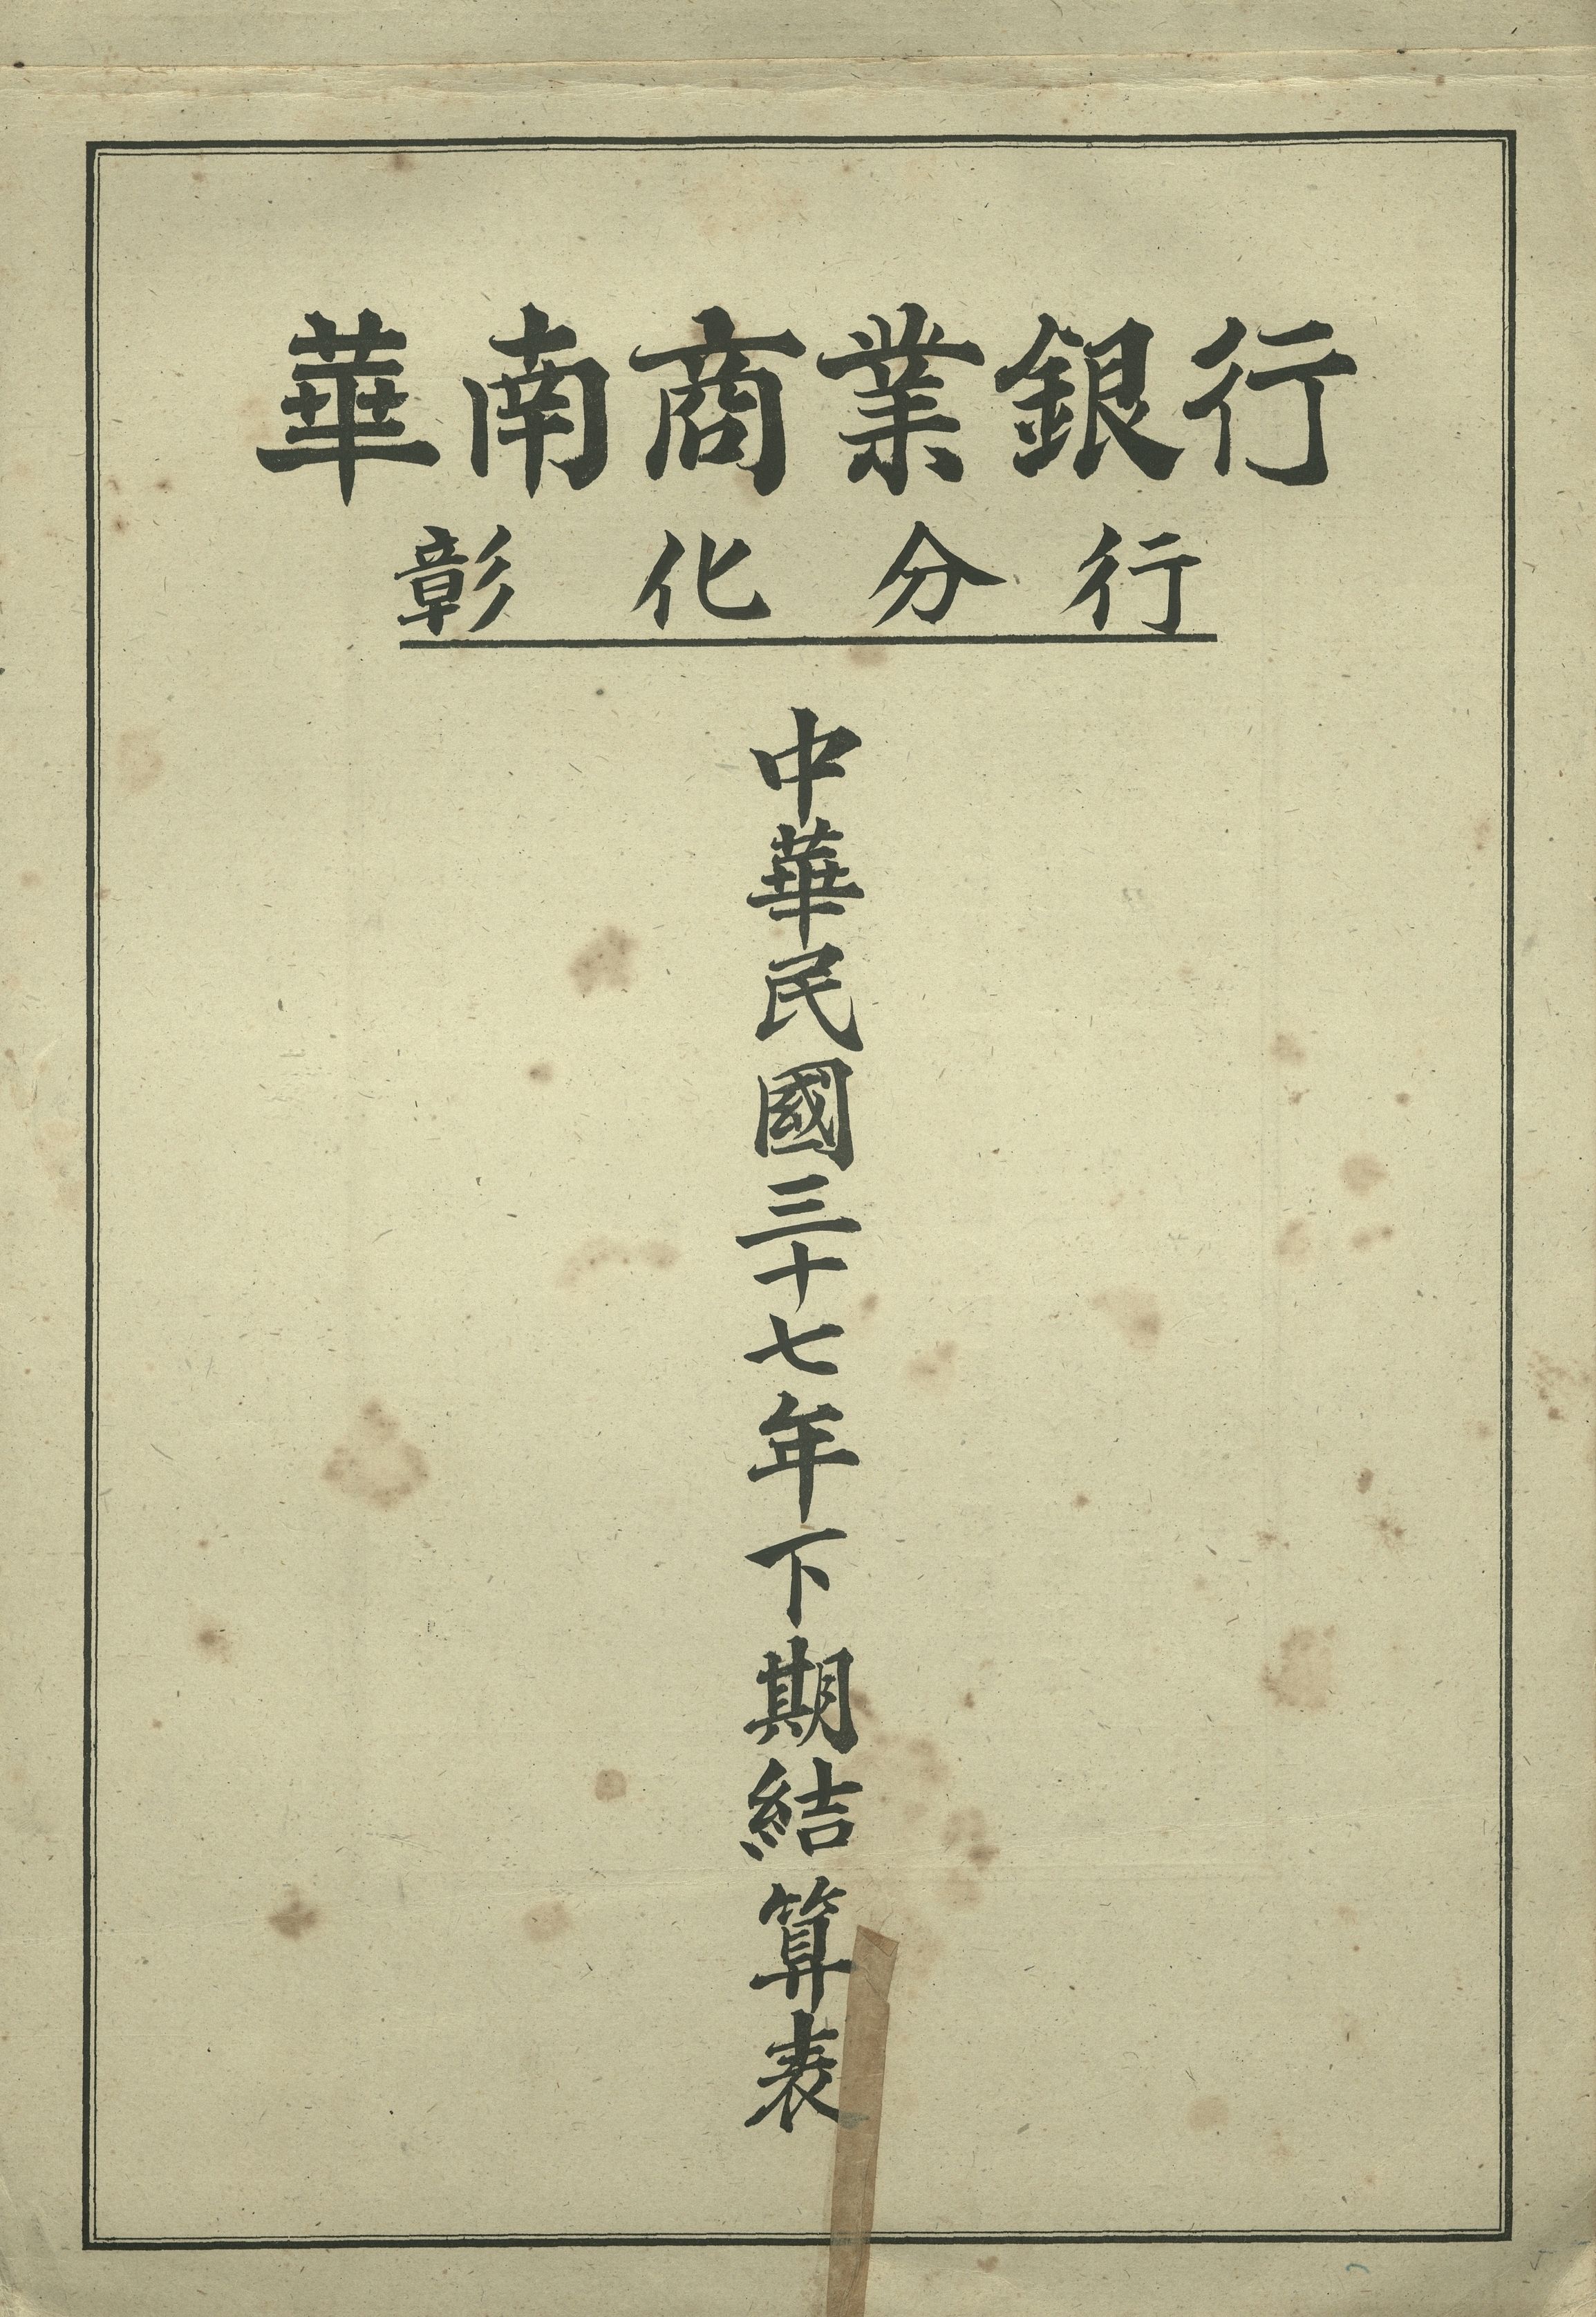 華南商業銀行
彰化分行
中華民國三十七年下期結算表